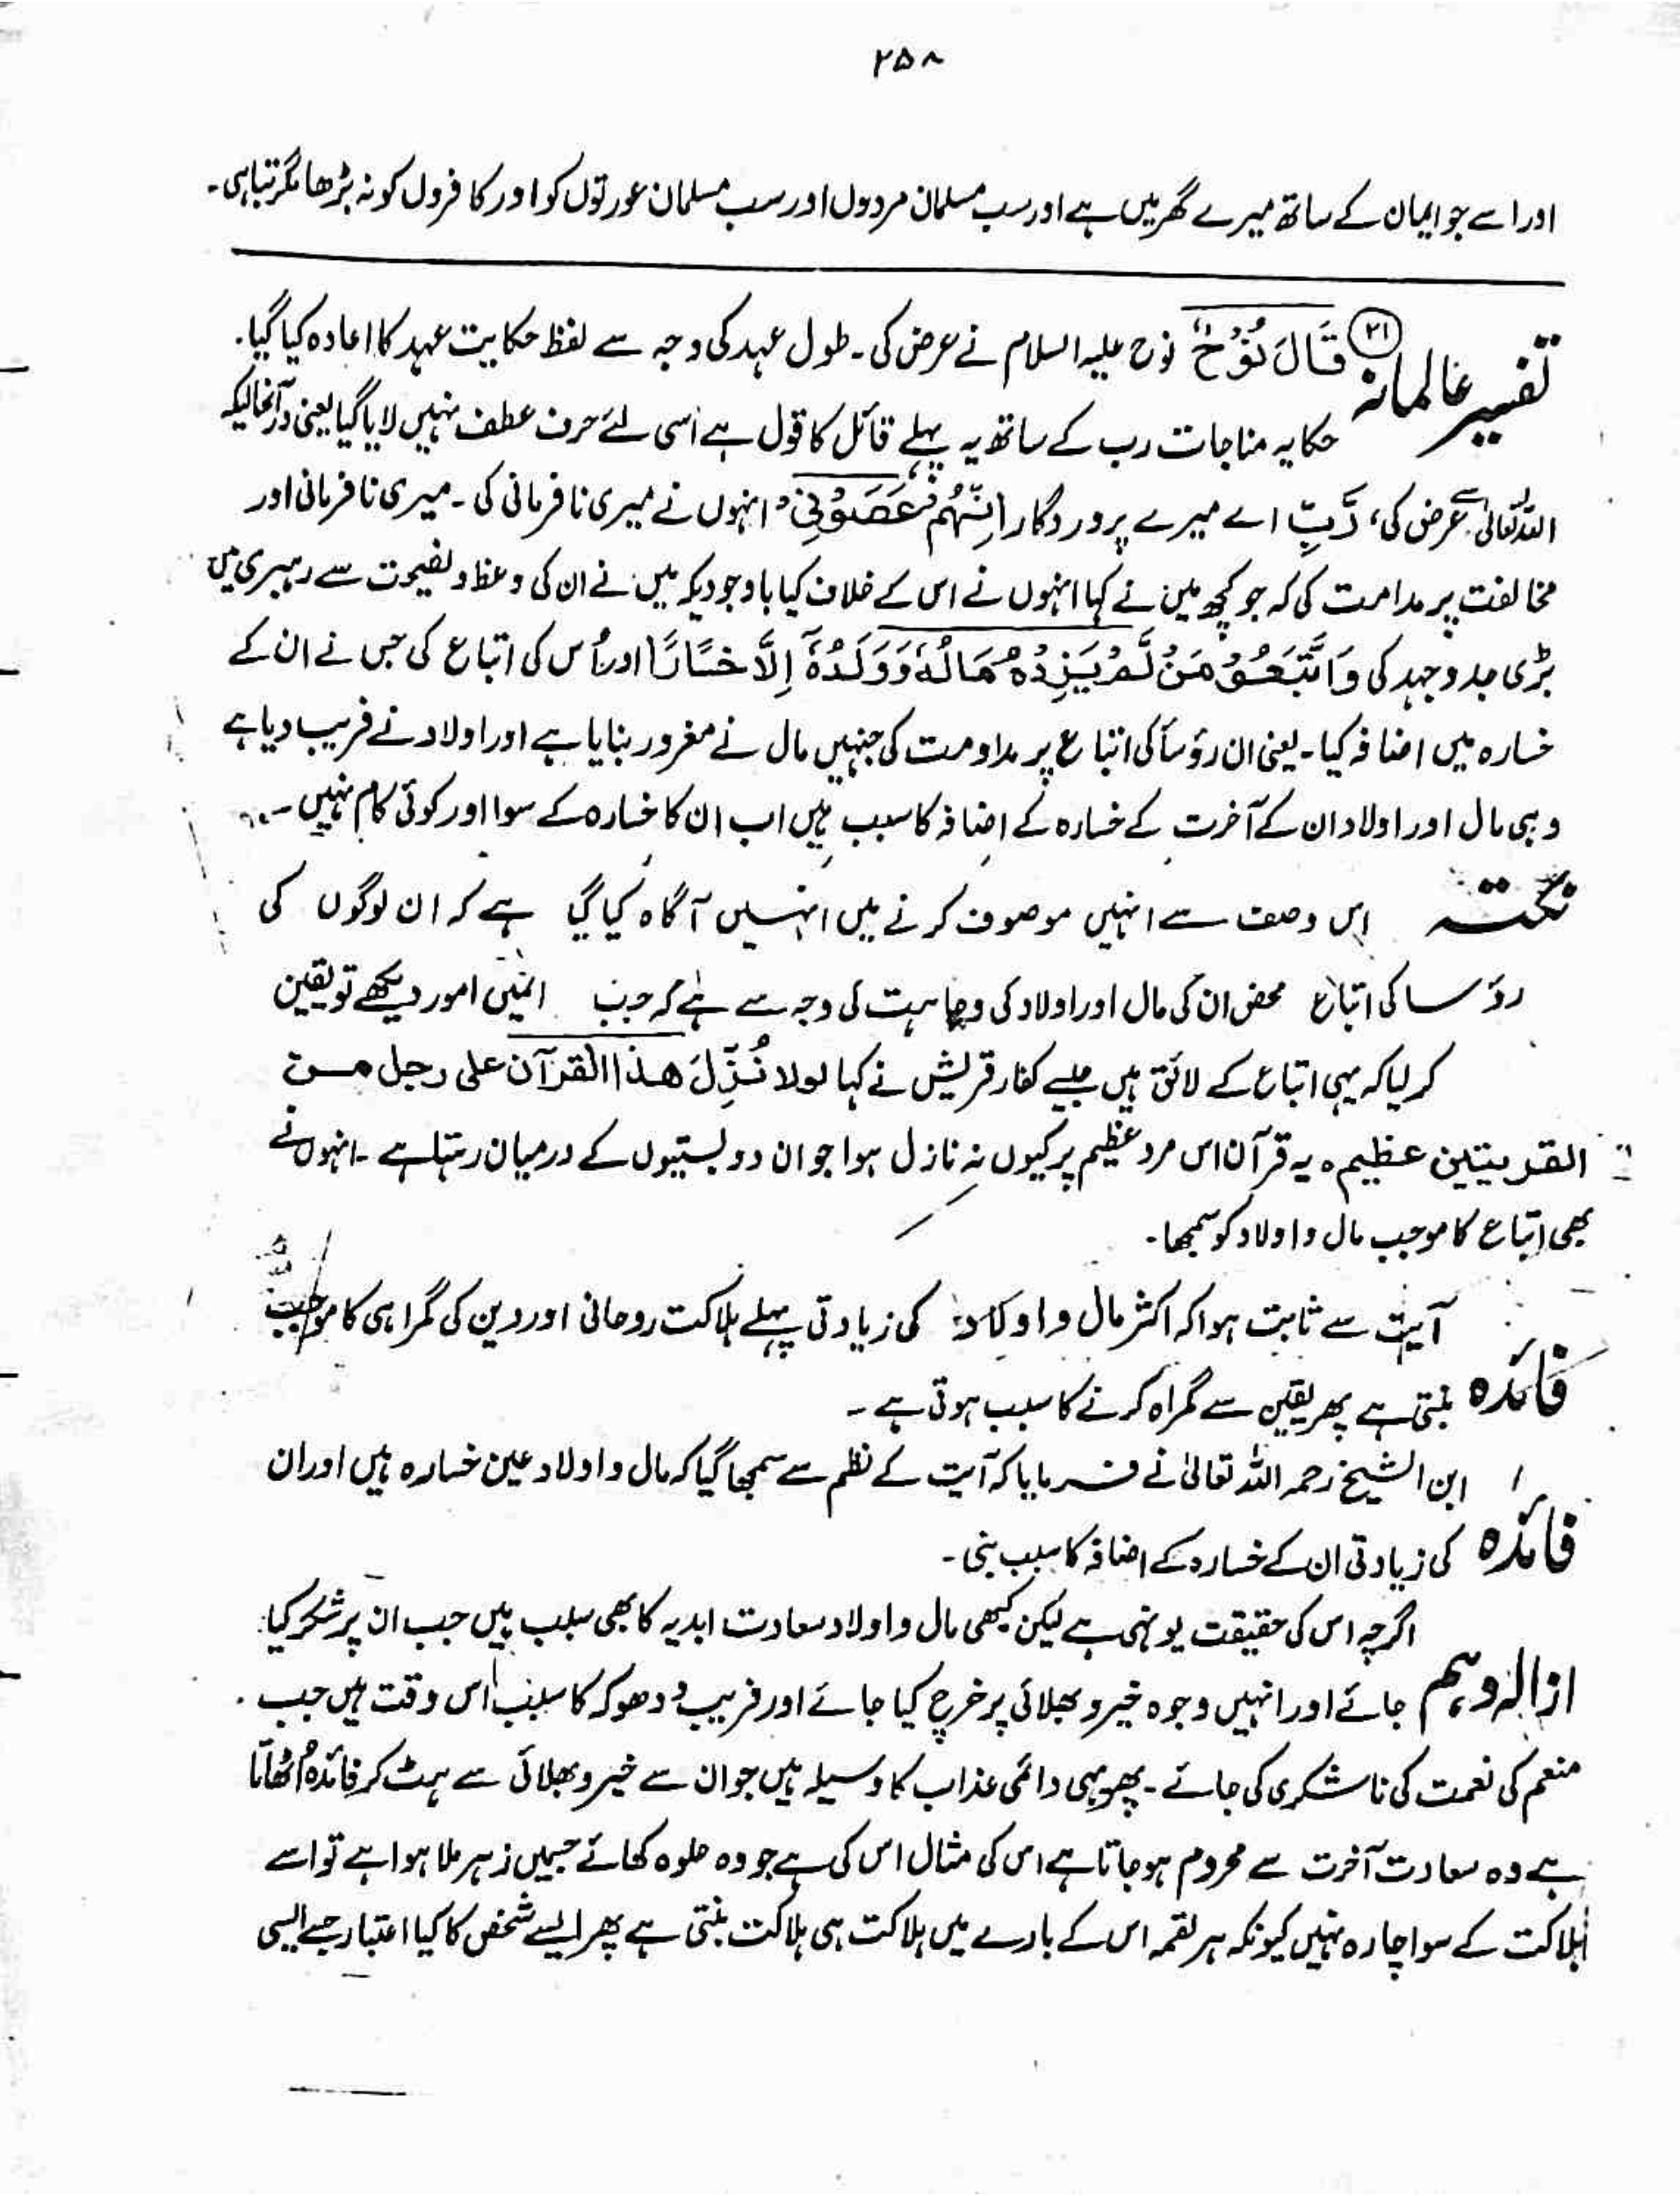 ۲۵۸
اور اسے جو ایمان کے ساتھ میرے گھر میں ہے اور سب مسلمان مردوں اور سب مسلمان عورتوں کو اور کافروں کو نہ بڑھا مگر تباہی۔
تفسیر عالمانہ ۲۱ قَالَ نُوْحٌ نوح علیہ السلام نے عرض کی۔ طول عہد کی وجہ سے لفظ حکایت عہد کا اعادہ کیا گیا۔
حکایہ مناجات رب کے ساتھ یہ پہلے قائل کا قول ہے اسی لئے حرف عطف نہیں لایا گیا یعنی درآنحالیکہ
اللہ تعالیٰ سے عرض کی، رَبِّ اے میرے پروردگار اِنَّہُمْ عَصَوْنِیْ انہوں نے میری نافرمانی کی۔ میری نافرمانی اور
مخالفت پر مدامت کی کہ جو کچھ میں نے کہا انہوں نے اس کے خلاف کیا باوجودیکہ میں نے ان کی وعظ و نصیحت سے رہبری میں
بڑی جدوجہد کی وَاتَّبَعُوْا مَنْ لَّمْ یَزِدْہُ مَالُہٗ وَوَلَدُہٗٓ اِلَّا خَسَارًا اور اُس کی اتباع کی جس نے ان کے
خسارہ میں اضافہ کیا۔ یعنی ان رؤسأ کی اتباع پر مداومت کی جنہیں مال نے مغرور بنایا ہے اور اولاد نے فریب دیا ہے
وہی مال اور اولاد ان کے آخرت کے خسارہ کے اضافہ کا سبب ہیں اب ان کا خسارہ کے سوا اور کوئی کام نہیں۔
نکتہ اس وصف سے انہیں موصوف کرنے میں انہیں آگاہ کیا گیا ہے کہ ان لوگوں کی
رؤسا کی اتباع محض ان کی مال اور اولاد کی وجاہت کی وجہ سے ہے کہ جب انہیں امور دیکھے تو یقین
کر لیا کہ یہی اتباع کے لائق ہیں جیسے کفار قریش نے کہا لولا نُزِّلَ ھذا القرآن علی رجل من
القریتین عظیم ہ یہ قرآن اس مرد عظیم پر کیوں نہ نازل ہوا جو ان دو بستیوں کے درمیان رہتا ہے۔ انہوں نے
بھی اتباع کا موجب مال و اولاد کو سمجھا۔
آیت سے ثابت ہوا کہ اکثر مال و اولاد کی زیادتی پہلے ہلاکت روحانی اور دین کی گمراہی کا موجب
فائدہ بنتی ہے پھر یقین سے گمراہ کرنے کا سبب ہوتی ہے۔
ابن الشیخ رحمہ اللہ تعالیٰ نے فرمایا کہ آیت کے نظم سے سمجھا گیا کہ مال و اولاد عین خسارہ ہیں اور ان
فائدہ کی زیادتی ان کے خسارہ کے اضافہ کا سبب بنی۔
اگرچہ اس کی حقیقت یونہی ہے لیکن کبھی مال و اولاد سعادت ابدیہ کا بھی سبب ہیں جب ان پر شکر کیا
ازالہ وہم جائے اور انہیں وجوہ خیر و بھلائی پر خرچ کیا جائے اور فریب و دھوکہ کا سبب اس وقت ہیں جب
منعم کی نعمت کی ناشکری کی جائے۔ پھر یہی دائمی عذاب کا وسیلہ ہیں جو ان سے خیر و بھلائی سے ہٹ کر فائدہ اُٹھاتا
ہے وہ سعادت آخرت سے محروم ہو جاتا ہے اس کی مثال اس کی ہے جو وہ حلوہ کھائے جسمیں زہر ملا ہوا ہے تو اسے
ہلاکت کے سوا چارہ نہیں کیونکہ ہر لقمہ اس کے بارے میں ہلاکت ہی ہلاکت بنتی ہے پھر ایسے شخص کا کیا اعتبار جسے ایسی